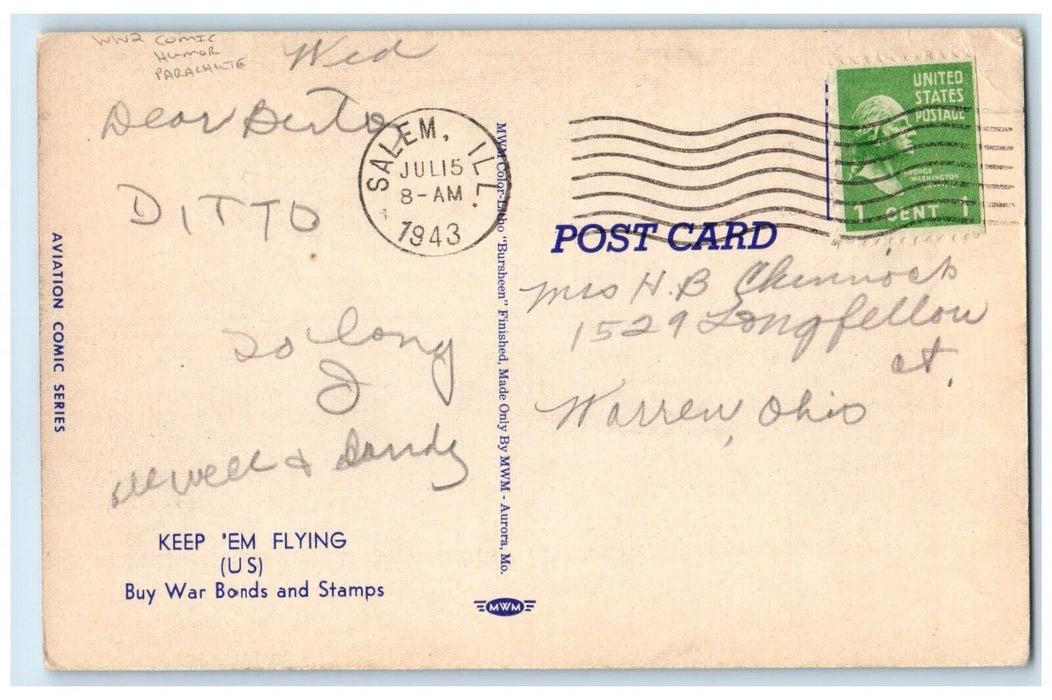 WW2 COMIC
HUMOR
PARACHUTE
Wed
Dear Berto
DITTO
So long
J
all well & Dandy
AVIATION COMIC SERIES
KEEP 'EM FLYING
(US)
Buy War Bonds and Stamps
SALEM, ILL.
JUL 15
8-AM
1943
MWM Color-Litho "Bursheen" Finished, Made Only By MWM - Aurora, Mo.
MWM
UNITED
STATES
POSTAGE
GEORGE
WASHINGTON
1 CENT 1
POST CARD
Mrs H.B
1529 Longfellow
st.
Warren, Ohio